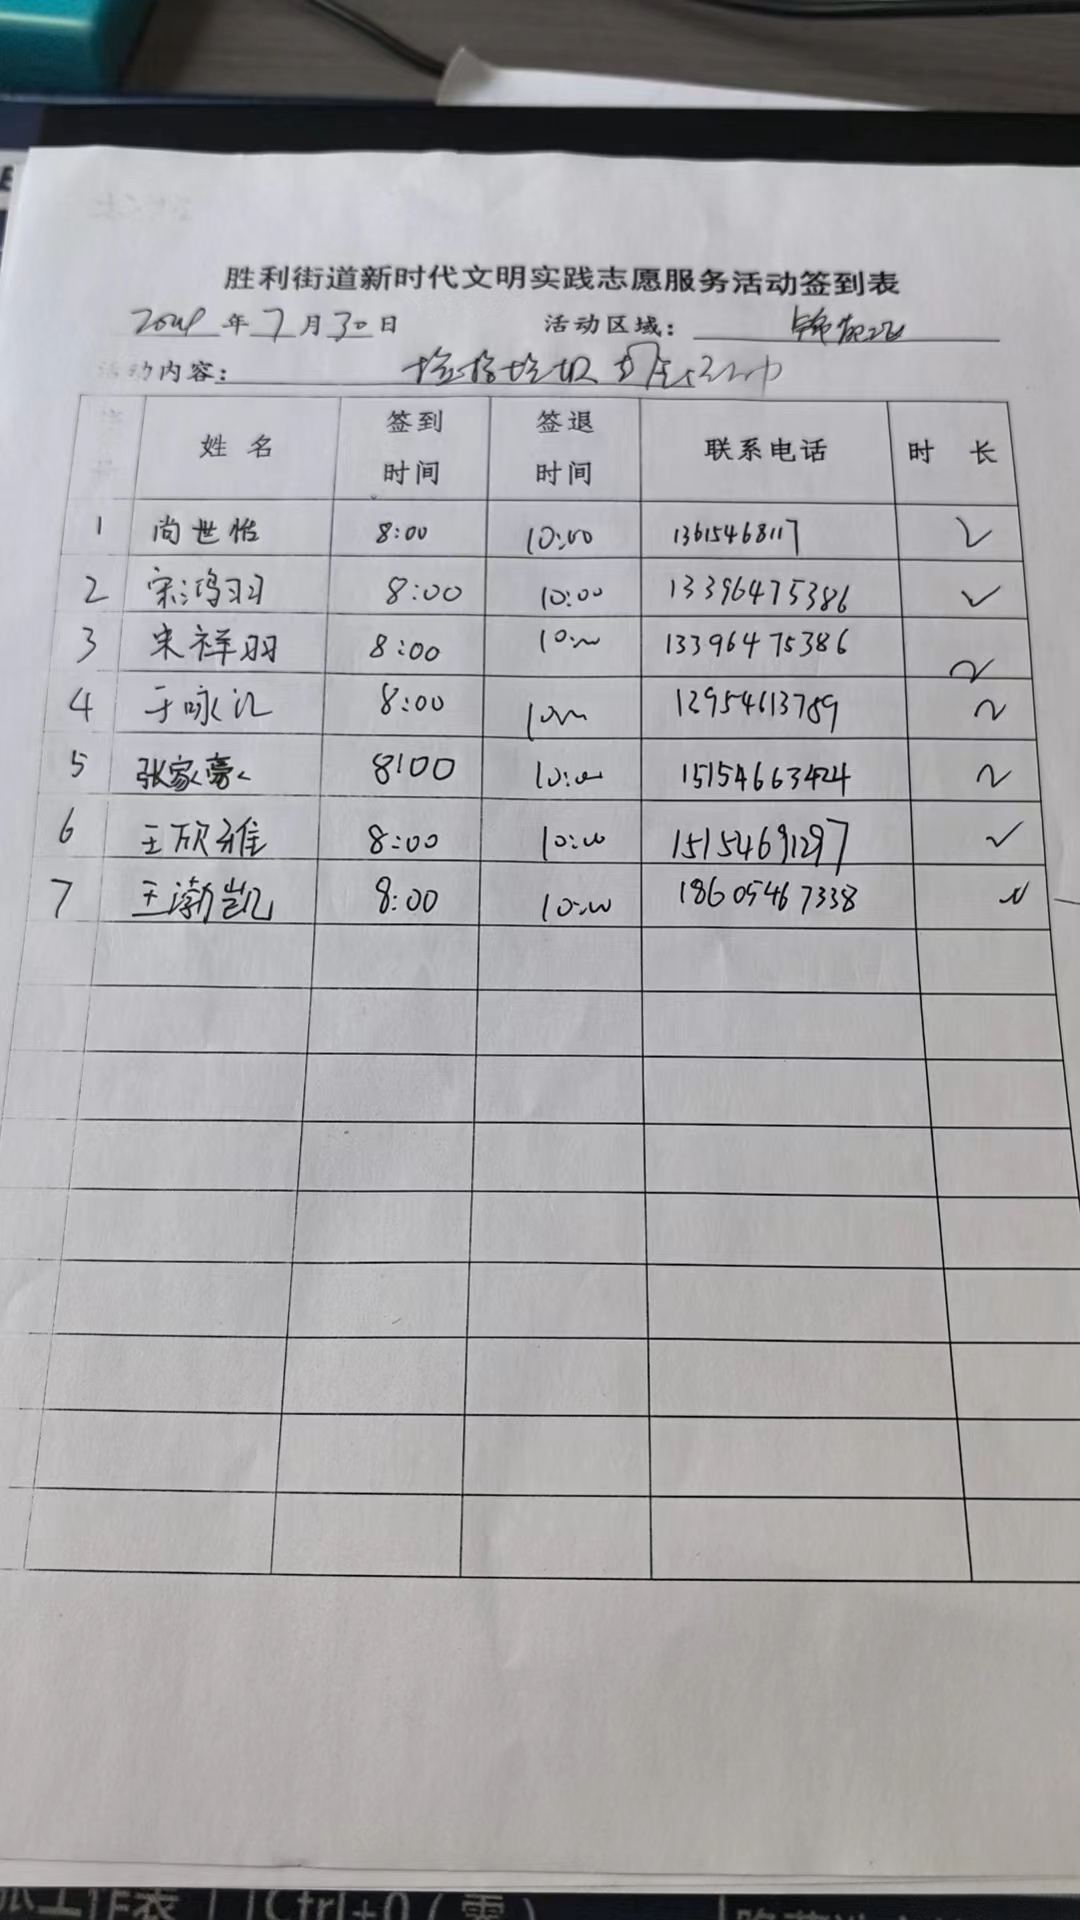 胜利街道新时代文明实践志愿服务活动签到表
2024年7月30日 活动区域：
活动内容：捡拾垃圾
姓 名 签到时间 签退时间 联系电话 时 长
1 尚世怡 8:00 10:00 13615468117 2
2 宋鸿羽 8:00 10:00 13396475386 2
3 宋祥羽 8:00 10:00 13396475386 2
4 于咏汇 8:00 10:00 12954613789 2
5 张家豪 8:00 10:00 15154663424 2
6 王欣雅 8:00 10:00 15154691297 2
7 王渤凯 8:00 10:00 18605467338 2
工作表 Ctrl+0（零）